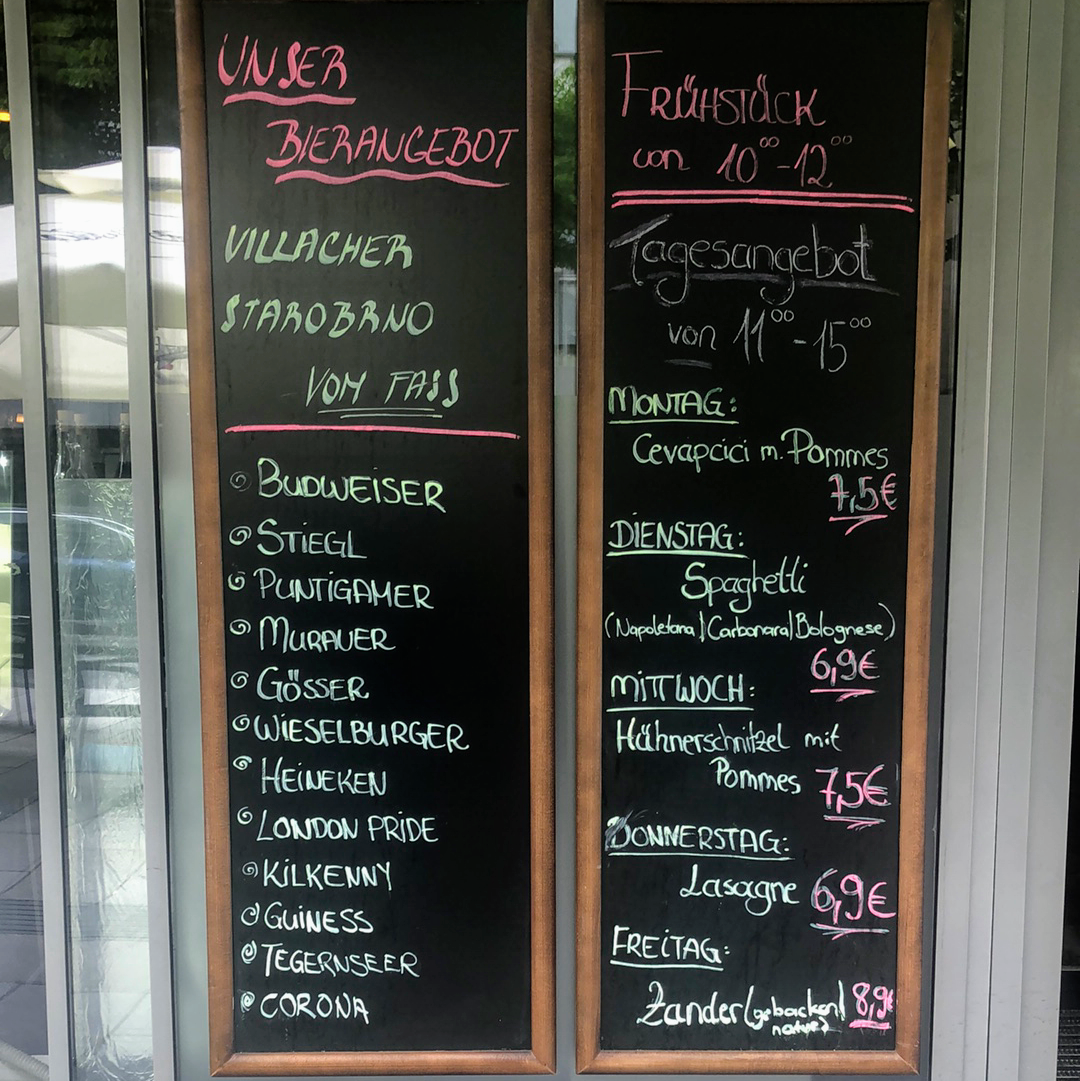 UNSER
BIERANGEBOT
VILLACHER
STAROBRNO
VOM FASS
BUDWEISER
STIEGL
PUNTIGAMER
MURAUER
GÖSSER
WIESELBURGER
HEINEKEN
LONDON PRIDE
KILKENNY
GUINESS
TEGERNSEER
CORONA
FRÜHSTÜCK
von 10⁰⁰-12⁰⁰
Tagesangebot
von 11⁰⁰-15⁰⁰
MONTAG:
Cevapcici m. Pommes
7,5€
DIENSTAG:
Spaghetti
(Napoletana|Carbonara|Bolognese)
6,9€
MITTWOCH:
Hühnerschnitzel mit
Pommes 7,5€
DONNERSTAG:
Lasagne 6,9€
FREITAG:
Zander (gebacken| 8,9€
natur)